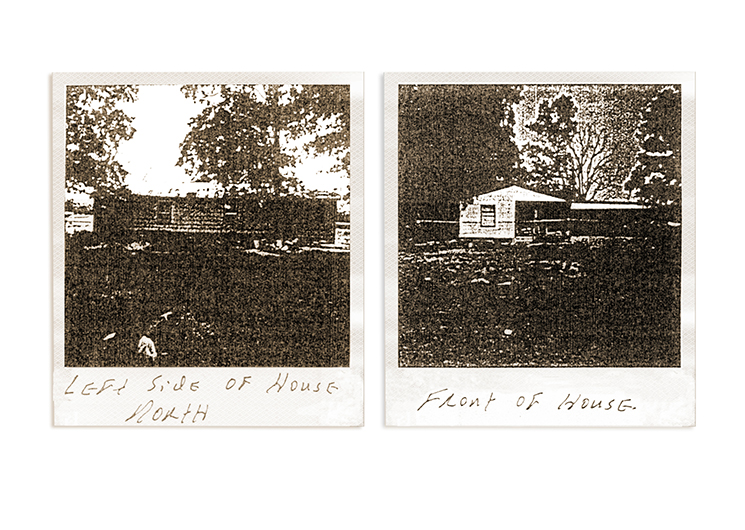 Left Side of House
North
Front of House.